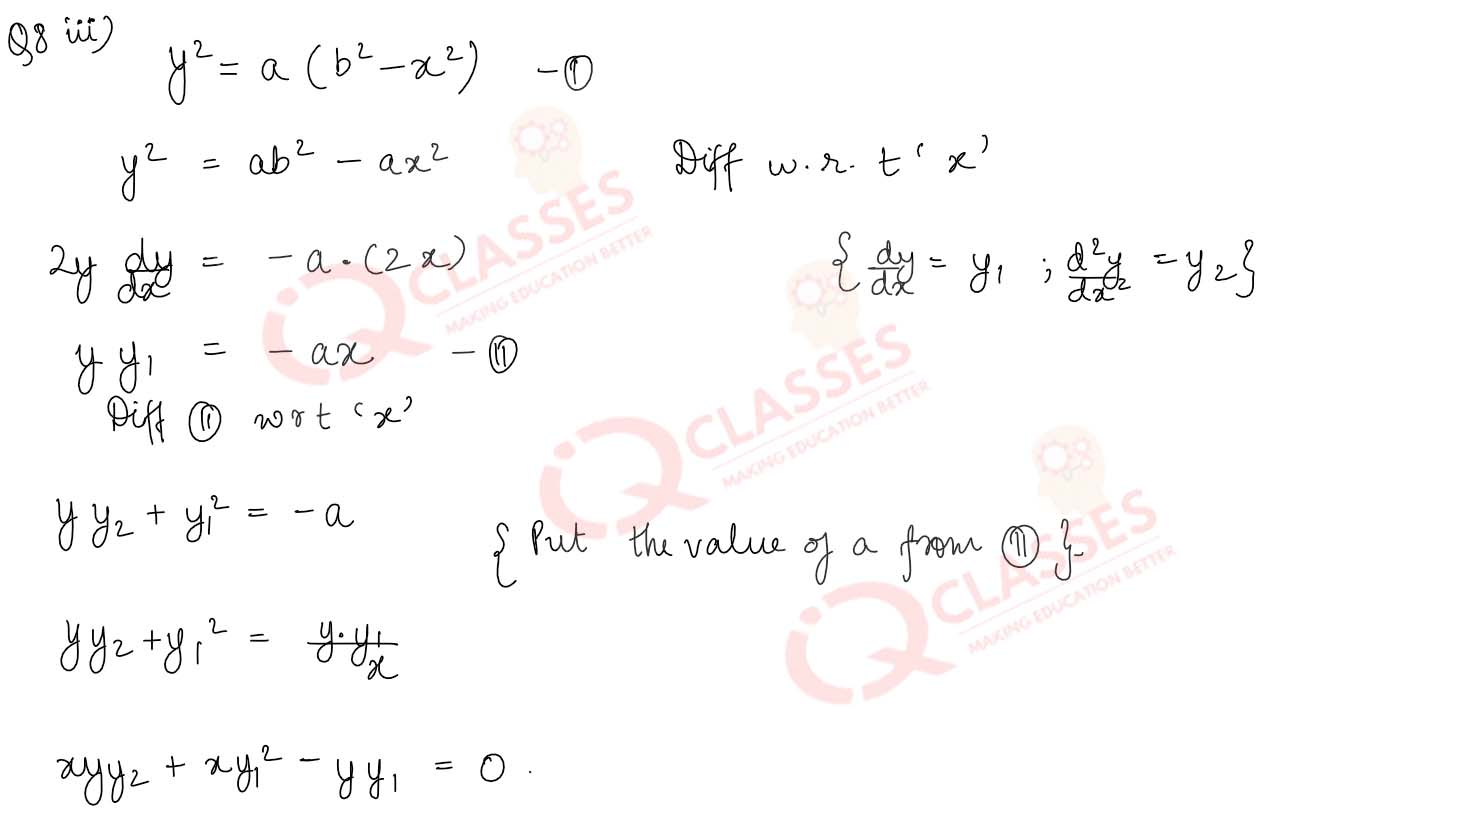 Q8 iii)
y² = a (b² - x²) - ①
y² = ab² - ax² Diff w.r.t 'x'
2y dy/dx = -a · (2x) { dy/dx = y₁ ; d²y/dx² = y₂ }
y y₁ = - ax - ⑪
Diff ⑪ wrt 'x'
y y₂ + y₁² = - a
{ Put the value of a from ⑪ }
y y₂ + y₁² = y·y₁/x
xyy₂ + xy₁² - y y₁ = 0 .
iQ CLASSES
MAKING EDUCATION BETTER
iQ CLASSES
MAKING EDUCATION BETTER
iQ CLASSES
MAKING EDUCATION BETTER